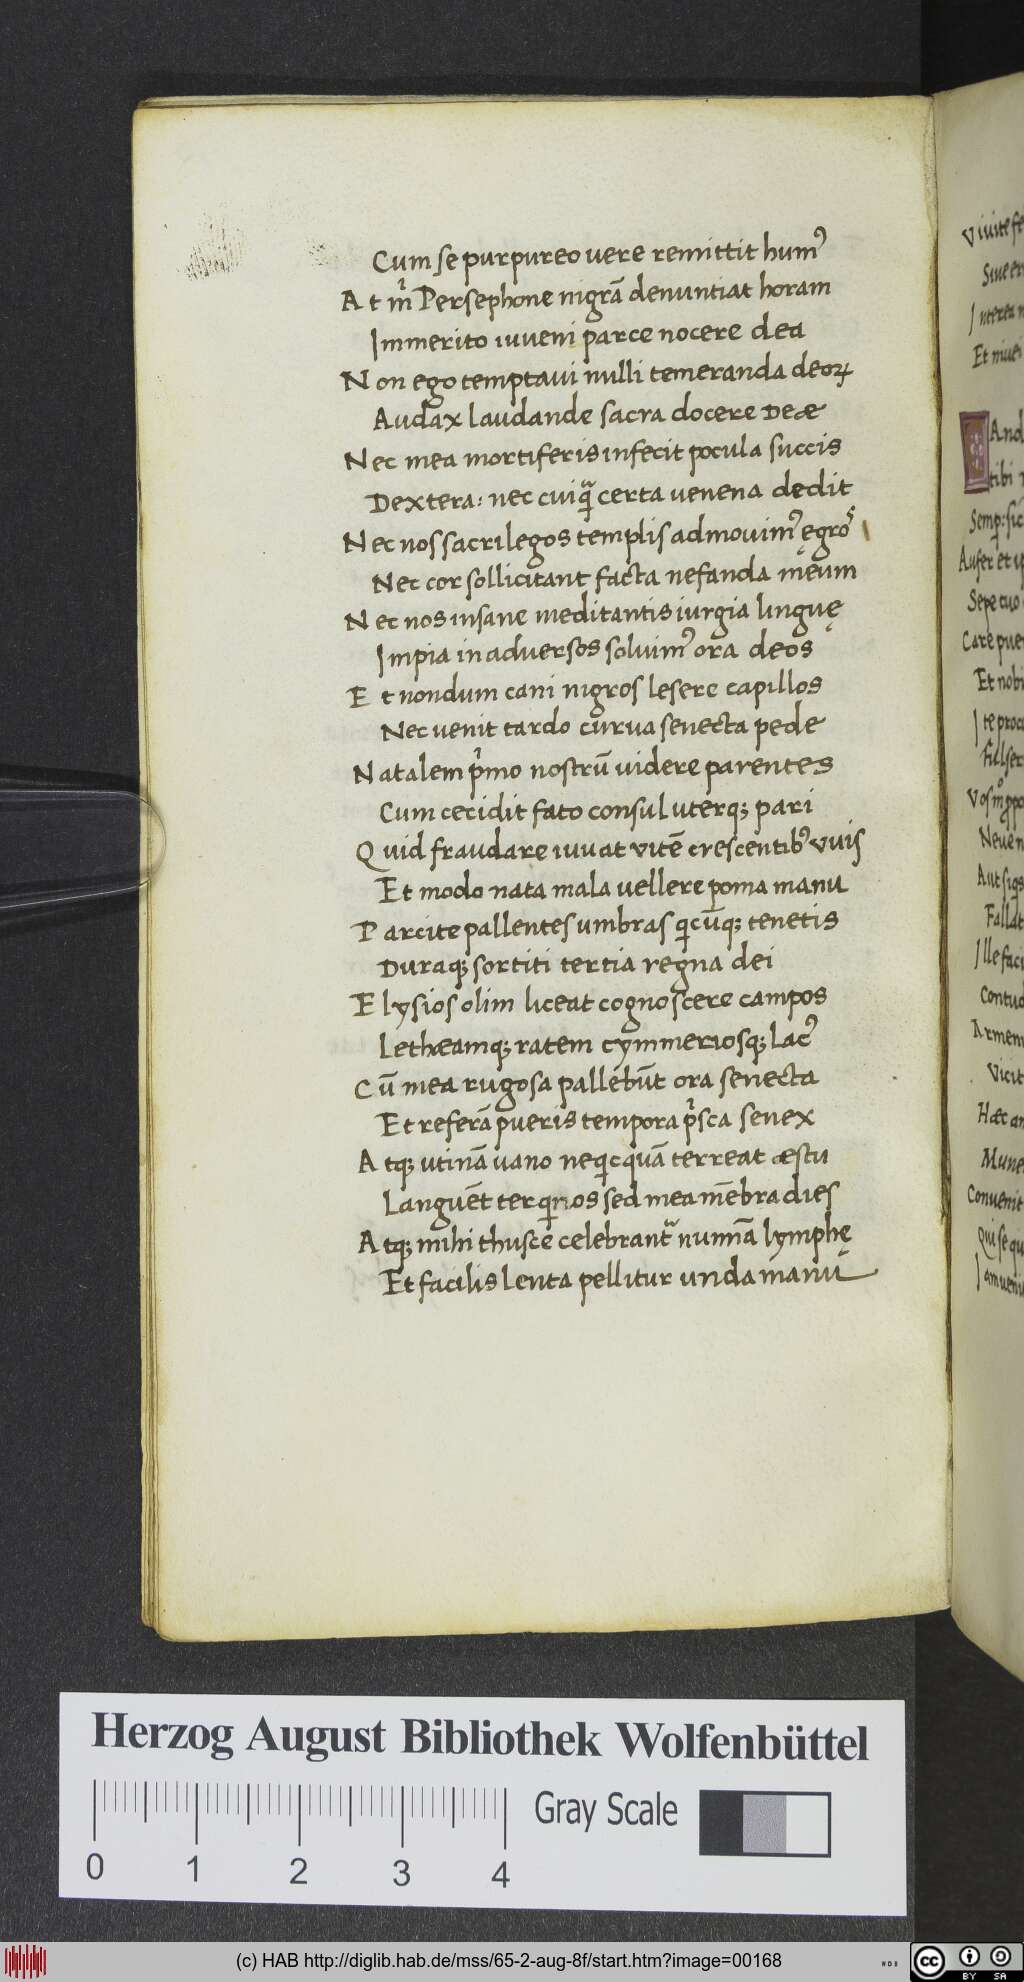 Cum se purpureo vere remittit hum᾽
At m̊ Persephone nigrā denuntiat horam
Immerito iuveni parce nocere dea
Non ego temptavi nulli temeranda deoꝝ
Audax laudande sacra docere Deæ
Nec mea mortiferis infecit pocula succis
Dextera: nec cuiq̃ certa venena dedit
Nec nos sacrilegos templis admovim᾽ ęgro᾽
Nec cor sollicitant facta nefanda męum
Nec nos insane meditantis iurgia linguę
Impia in adversos solvim᾽ ora deos
Et nondum cani nigros lesere capillos
Nec venit tardo curva senecta pede
Natalem pͥmo nostrū videre parentes
Cum cecidit fato consul uterq; pari
Quid fraudare iuvat vitē crescentib᾽ vuis
Et modo nata mala vellere poma manu
Parcite pallentes umbras qͥcūq; tenetis
Duraq; sortiti tertia regna dei
Elysios olim liceat cognoscere campos
Lethæamq; ratem cymmeriosq; lac᾽
Cū mea rugosa pallebūt ora senecta
Et referā pueris tempora pͥsca senex
Atq; utinā vano neqͥcquā terreat æstu
Languēt ter qͥnos sed mea mēbra dies
Atq; mihi thusce celebrantᷣ numīa lymphę
Et facilis lenta pellitur unda manu
Vivite fe
Sive er
Interea n
Et nivei
And
tibi
Semp: sic
Aufer et ip
Sepe tuo
Care puer
Et nobi
Ite proc
Fulser
Neve n
Aut siqs
Fallat
Ille faci
Contud
Armen
Vicit
Hæc an
Mune
Convenit
Qui se qu
Iam veni
Herzog August Bibliothek Wolfenbüttel
Gray Scale
0 1 2 3 4
(c) HAB http://diglib.hab.de/mss/65-2-aug-8f/start.htm?image=00168
cc BY SA